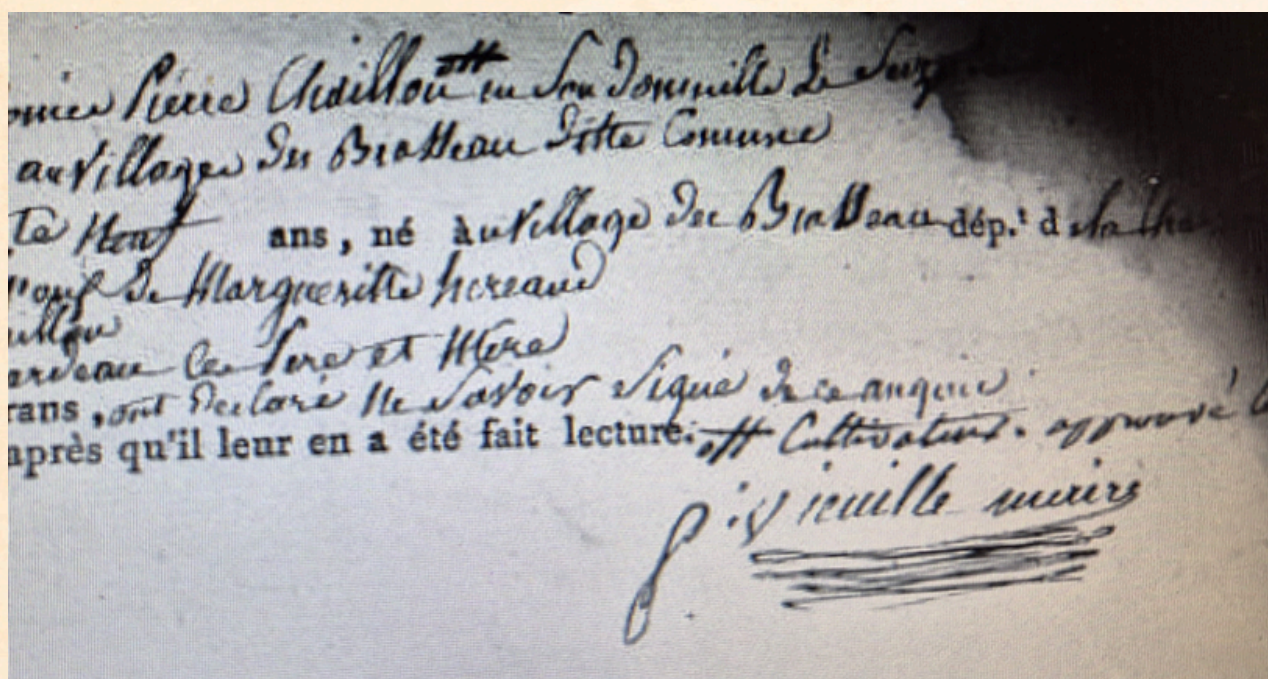 Pierre Chaillou # en Son Domicille Le Seize
au Village du Bratteau ditte Comune
Neuf ans, né à u Village du Bratteau dép.t d ela Cha
de Margueritte hereaud
Pere et Mere
ont Declaré Ne Savoir Signé de ce anquis
après qu'il leur en a été fait lecture. # Cultivateur. approuvé
Vieuille maire